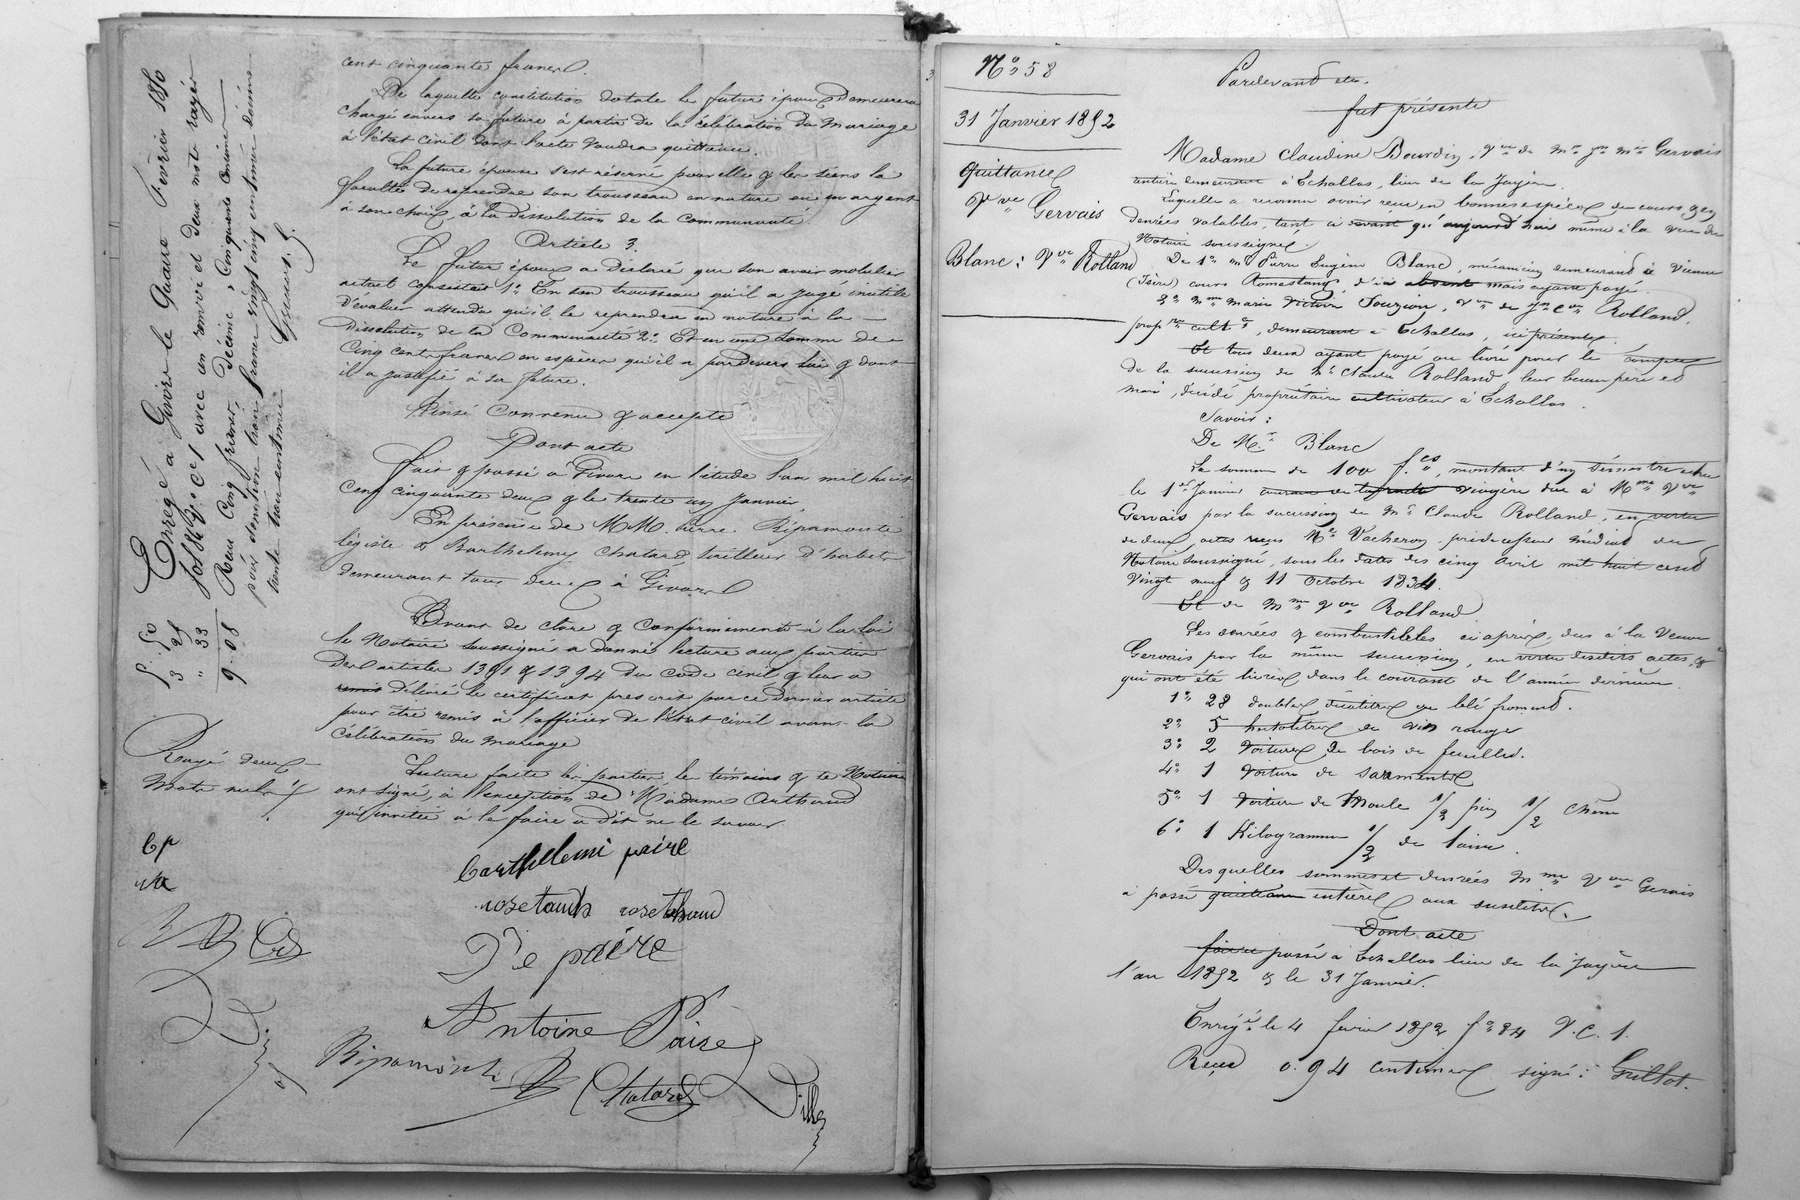 cent cinquante francs.
De laquelle constitution dotale le futur époux demeurera
chargé envers sa future à partir de la célébration du mariage
à l'état civil dont l'acte vaudra quittance.
La future épouse s'est réservé pour elle & les siens la
faculté de reprendre son trousseau en nature ou en argent
à son choix, à la dissolution de la communauté
Article 3.
Le futur époux a déclaré que son avoir mobilier
actuel consistait 1° En son trousseau qu'il a jugé inutile
d'évaluer attendu qu'il le reprendra en nature à la
dissolution de la Communauté 2° Et en une somme de
Cinq cents francs en espèces qu'il a pardevers lui & dont
il a justifié à sa future.
Ainsi convenu & accepté
Dont acte
Fait & passé à Givors en l'étude l'an mil huit
cent cinquante deux & le trente un Janvier
En présence de M.M. Pierre Ripamonti
légiste & Barthélemy Chatard, tailleur d'habits
demeurant tous deux à Givors
Avant de clore & conformément à la loi
le Notaire soussigné a donné lecture aux parties
des articles 1391 & 1394 du code civil & leur a
remis délivré le certificat prescrit par ce dernier article
pour être remis à l'officier de l'état civil avant la
célébration du mariage
Lecture faite les parties, les témoins & le Notaire
ont signé, à l'exception de Madame Arthaud
qui invitée à le faire a dit ne le savoir
barthellemi paire
rosetaud rosethaud
Pe paire
Antoine Paire
Ripamonti Chatard
Enregé à Givors le quatre Février 1850
fol 84 V° C° 1 avec un renvoi et deux mots rayés
Reçu Cinq francs, décime, Cinquante centimes
pour donation trois francs vingt cinq centimes décime
trente trois centimes
5. 50
3 25
" 33
9. 08
Rayé deux
mots nuls
bp
N° 58
31 Janvier 1852
Quittance
Vve Gervais
à
Blanc & Vve Rolland
Pardevant etc.
fut présente
Madame Claudine Bourdin, Vve de Mr Jn Mie Gervais
rentière demeurant à Echallas, lieu de la Jayère
Laquelle a reconnu avoir reçu en bonnes espèces de cours & en
denrées valables, tant ci avant qu'aujourd'hui même à la vue du
Notaire soussigné.
De 1° Mr Pierre Eugène Blanc, mécanicien demeurant à Vienne
(Isère) cours Romestang, d'ici absent mais ayant payé.
2° Mme Marie Victoire Vve de Jn Cde Rolland,
propre cultce, demeurant à Echallas, ici présente.
Et tous deux ayant payé ou livré pour le compte
de la succession de Mr Claude Rolland leur beau père et
mari, décédé propriétaire cultivateur à Echallas.
Savoir :
De Mr Blanc
La somme de 100 f.cs, montant d'un semestre échu
le 1er Janvier courant de la rente viagère due à Mme Vve
Gervais par la succession de Mr Claude Rolland, en vertu
de deux actes reçus Me Vacheron prédécesseur médiat du
Notaire soussigné, sous les dates des cinq avril mil huit cent
Vingt neuf & 11 octobre 1834.
Et de Mme Vve Rolland
Les denrées & combustibles ci après, dus à la Veuve
Gervais par la même succession, en vertu desdits actes, &
qui ont été livrés dans le courant de l'année dernière
1° 28 doubles décalitres de blé froment.
2° 5 hectolitres de vin rouge
3° 2 voitures de bois de feuilles.
4° 1 voiture de sarments
5° 1 voiture de moule 1/2 pin 1/2 chêne
6° 1 Kilogramme 1/2 de laine.
Desquelles sommes et denrées Mme Vve Gervais
a passé quittance entière aux susdits.
Dont acte
fait et passé à Echallas lieu de la Jayère
l'an 1852 & le 31 Janvier.
Enregé le 4 février 1852 f° 84 V. C. 1.
Reçu 0. 94 centimes signé : Guillot.